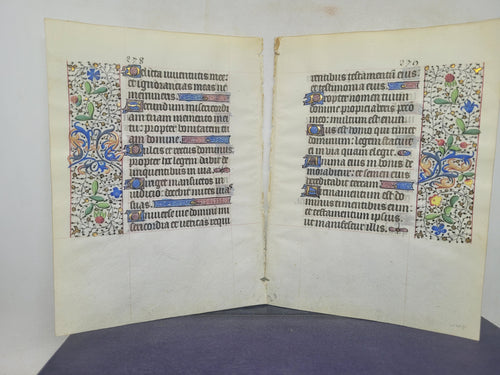 228
Delicta iuventutis mee:
et ignorancias meas ne
memineris.
Secundum misericordi
am tuam memento mei
tu: propter bonitatem tu
am domine.
Dulcis et rectus dominus:
propter hoc legem dabit de
linquentibus in via.
Diriget mansuetos in iu
dicio: docebit mites vias
suas.
Universe vie domini mi
sericordia et veritas requi
229
rentibus testamentum eius
et testimonia eius.
Propter nomen tuum
domine propiciaberis pec
meo: multum est enim.
Quis est homo qui timet
dominum: legem statuit
ei in via quam elegit.
Anima eius in bonis de
morabitur: et semen eius
hereditabit terram.
Firmamentum est do
minus timentibus eum:
et testamentum ipsius
ut manifestetur illis.